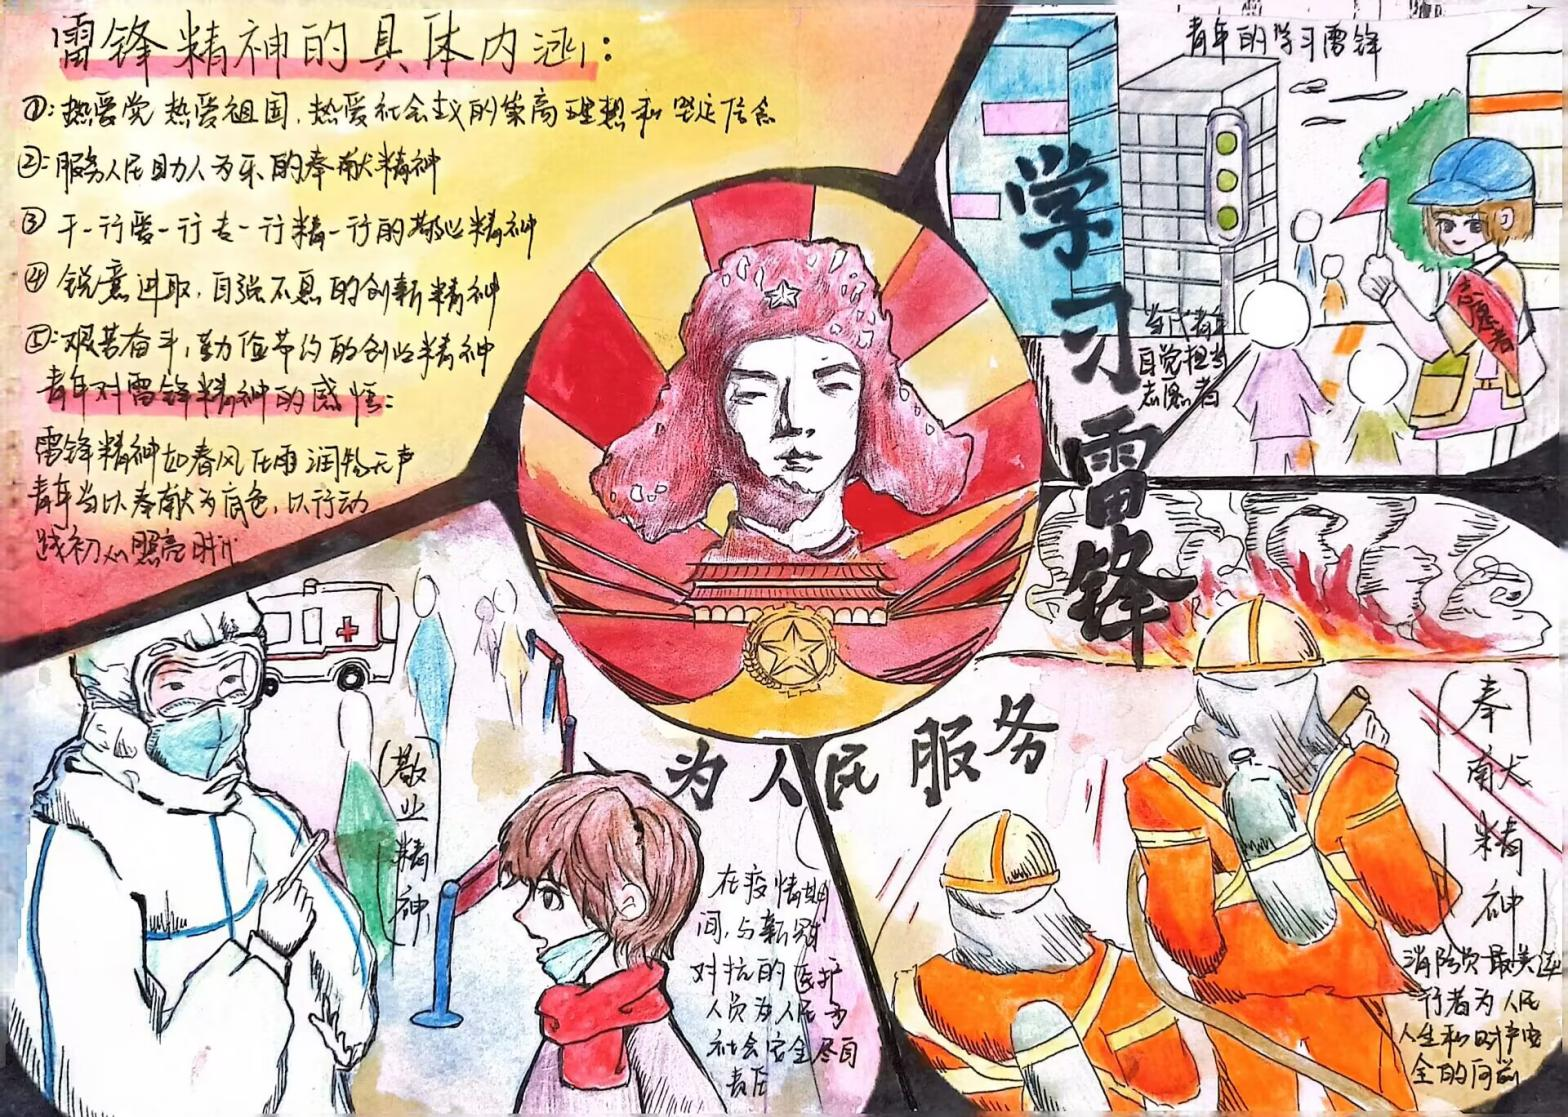 雷锋精神的具体内涵:
①:热爱党 热爱祖国,热爱社会主义的崇高理想和坚定信念
②:服务人民助人为乐的奉献精神
③干一行爱一行专一行精一行的敬业精神
④锐意进取,自强不息的创新精神
⑤:艰苦奋斗,勤俭节约的创业精神
青年对雷锋精神的感悟:
雷锋精神如春风化雨润物无声
青年当以奉献为底色,以行动
践初心照亮时代
青年的学习雷锋
学习雷锋
当代青年
自觉担当
志愿者
志愿者
为人民服务
(敬业精神)
在疫情期
间,与新冠
对抗的医护
人员为人民为
社会安全尽自
责任
奉献精神
消防员最美逆
行者为人民
人生和财产安
全的